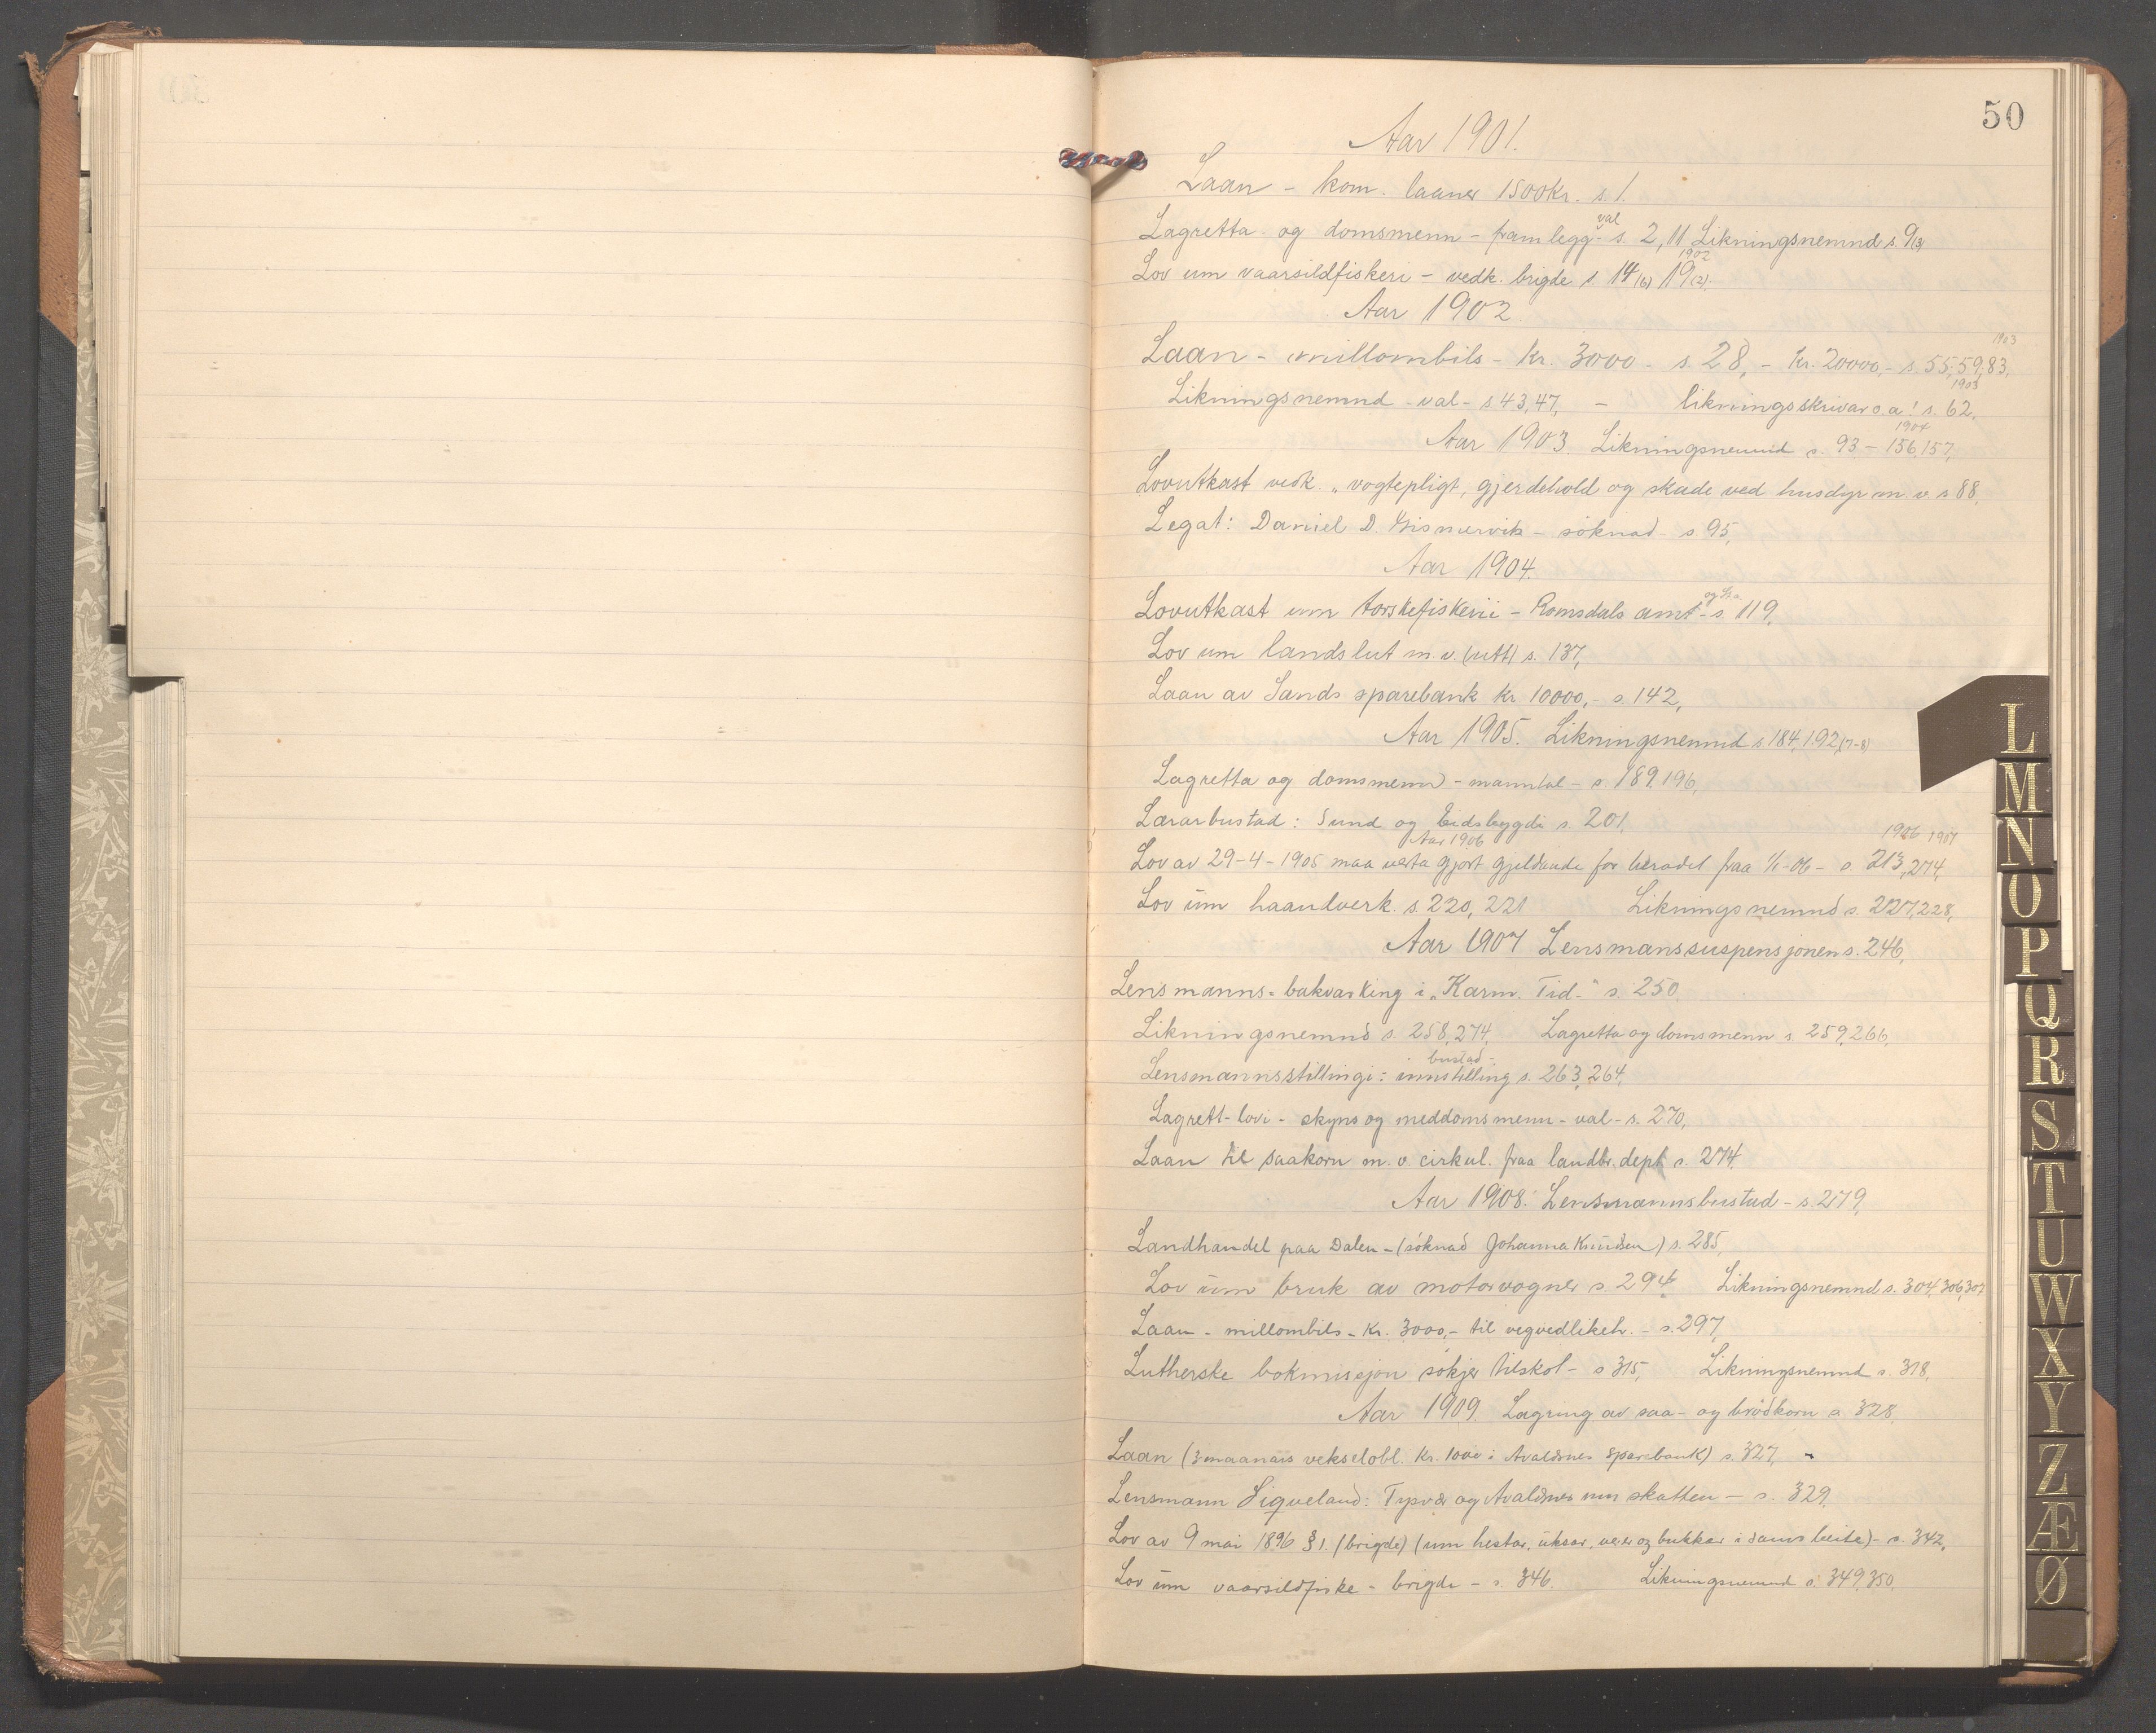 50
Aar 1901.
Laan - kom. laaner 1500 Kr. s. 1.
val
Lagretta- og domsmenn - framlegg - s. 2, 11 Likningsnemnd s. 9(3)
1902
Lov um vaarsildfiskeri - vedk. brigde s. 14(6) 19(2).
Aar 1902.
1903
Laan - millombils - kr. 3000 - s. 28, - Kr. 20000,- s. 55, 59, 83.
1903
Likningsnemnd - val - s 43, 47, - likningsskrivar o a! s. 62.
1904
Aar 1903. Likningsnemnd s. 93 - 156, 157,
Lovutkast vedk. „vogtepligt, gjerdehold og skade ved husdyr m. v. s 88,
Legat: Daniel D. Gismervik - söknad - s. 95,
Aar 1904.
Lovutkast um torskefiskeri - Romsdals amt - s. 119,
Lov um landslut m. v. (utt) s. 137,
Laan av Sands sparebank kr 10000,- s. 142,
Aar 1905. Likningsnemnd s. 184, 192, (7-8)
Lagretta og domsmenn - manntal - s. 189, 196,
Lærarbustad: Sund og Eidsbygdi s. 201,
Aar 1906 1906 1907
Lov av 29-4-1905 maa verta gjort gjeldande for heradet fraa 1/1-06 - s. 213, 274,
Lov um haandverk. s. 220, 221 Likningsnemnd s. 227, 228,
Aar 1907 Lensmanssuspensjonen s. 246,
Lensmanns-bakvasking i „Karm. Tid." s. 250
Likningsnemnd s. 258, 274, Lagretta og domsmenn s. 259, 266,
bustad -
Lensmannsstillingi: innstilling s. 263, 264,
Lagrett-lovi - skyns og meddomsmenn - val - s. 270,
Laan til saakorn m. v cirkul. fraa landbr. dept s. 274,
Aar 1908. Lensmannsbustad - s. 279,
Landhandel paa Dalen - (söknad Johanna Knudsen) s. 285,
Lov um bruk av motorvogner s. 294, Likningsnemnd s. 304, 306, 307
Laan - millombils - Kr. 3000,- til vegvedlikeh. - s. 297,
Lutherske bokmissjon søkjer tilskot - s 315, Likningsnemnd s. 318,
Aar 1909. Lagring av saa- og brödkorn s. 328,
Laan (3 maanars vekselobl. Kr. 1000 i Avaldsnes Sparebank) s. 327,
Lensmann Liqueland: Tysvær og Avaldsnes um skatten - s. 329,
Lov av 9 mai 1896 § 1. (brigde) (um hestar, uksar, verer og bukkar i sams beite) - s. 342,
Lov um vaarsildfiske - brigde - s. 346. Likningsnemnd s. 349, 350,
L
M
N
O
P
Q
R
S
T
U
W
X
Y
Z
Æ
Ø